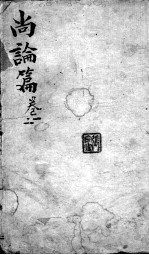 尚論篇
卷